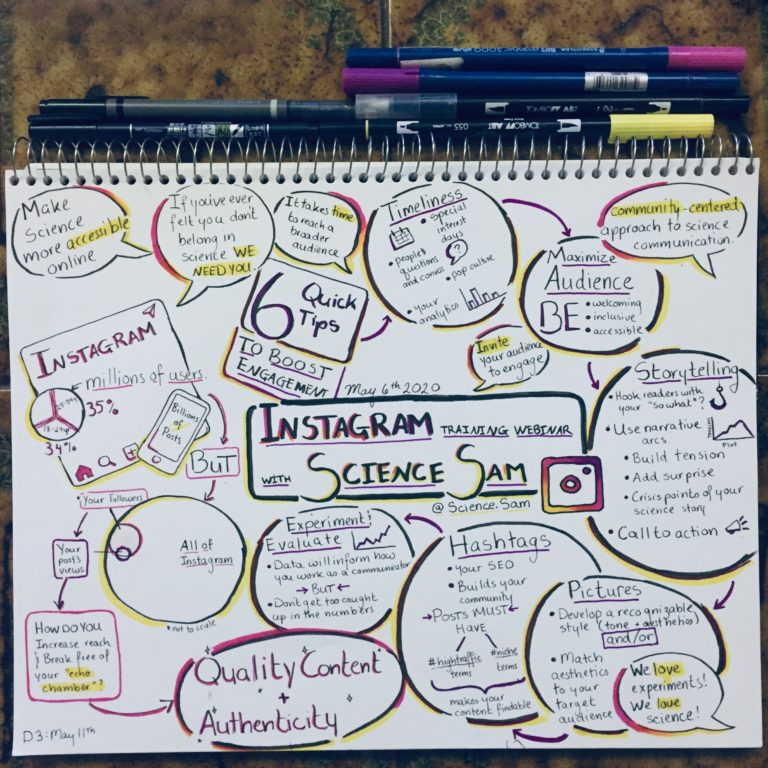 STAEDTLER
graphic 3000 duo
TOMBOW ABT
TOMBOW ABT
055
Make
Science
more accessible
online
If you've ever
felt you don't
belong in
science WE
NEED YOU
It takes time
to reach a
broader
audience
Timeliness
• special
interest
days
• people's
questions
and convos
?
• pop culture
• your
analytics
community-centered
approach to science
communication.
Maximize
Audience
BE
• welcoming
• inclusive
• accessible
6 Quick
Tips
TO BOOST
ENGAGEMENT
Invite
your audience
to engage
May 6th 2020
INSTAGRAM TRAINING WEBINAR
WITH SCIENCE SAM
@Science.Sam
INSTAGRAM
millions of users.
35%
18-24yr
34%
Billions
of
Posts
BUT
Your followers
Your
post's
views
All of
Instagram
*not to scale
HOW DO YOU
Increase reach
& Break free of
your "echo
chamber"?
Quality Content
+
Authenticity
Storytelling
• Hook readers with
your "so what"?
• Use narrative
arcs
Plot
• Build tension
• Add surprise
• Crisis points of your
science story
• Call to action
Pictures
• Develop a recognizable
style (tone + aesthetics)
and/or
• Match
aesthetics
to your
target
audience
We love
experiments!
We love
science!
Hashtags
• your SEO
• Builds your
community
→POSTS MUST←
HAVE
#hightraffic
terms
#niche
terms
makes your
content findable
Experiment!
Evaluate
• Data will inform how
you work as a communicator
→BUT←
• Don't get too caught
up in the numbers
D3: May 11th